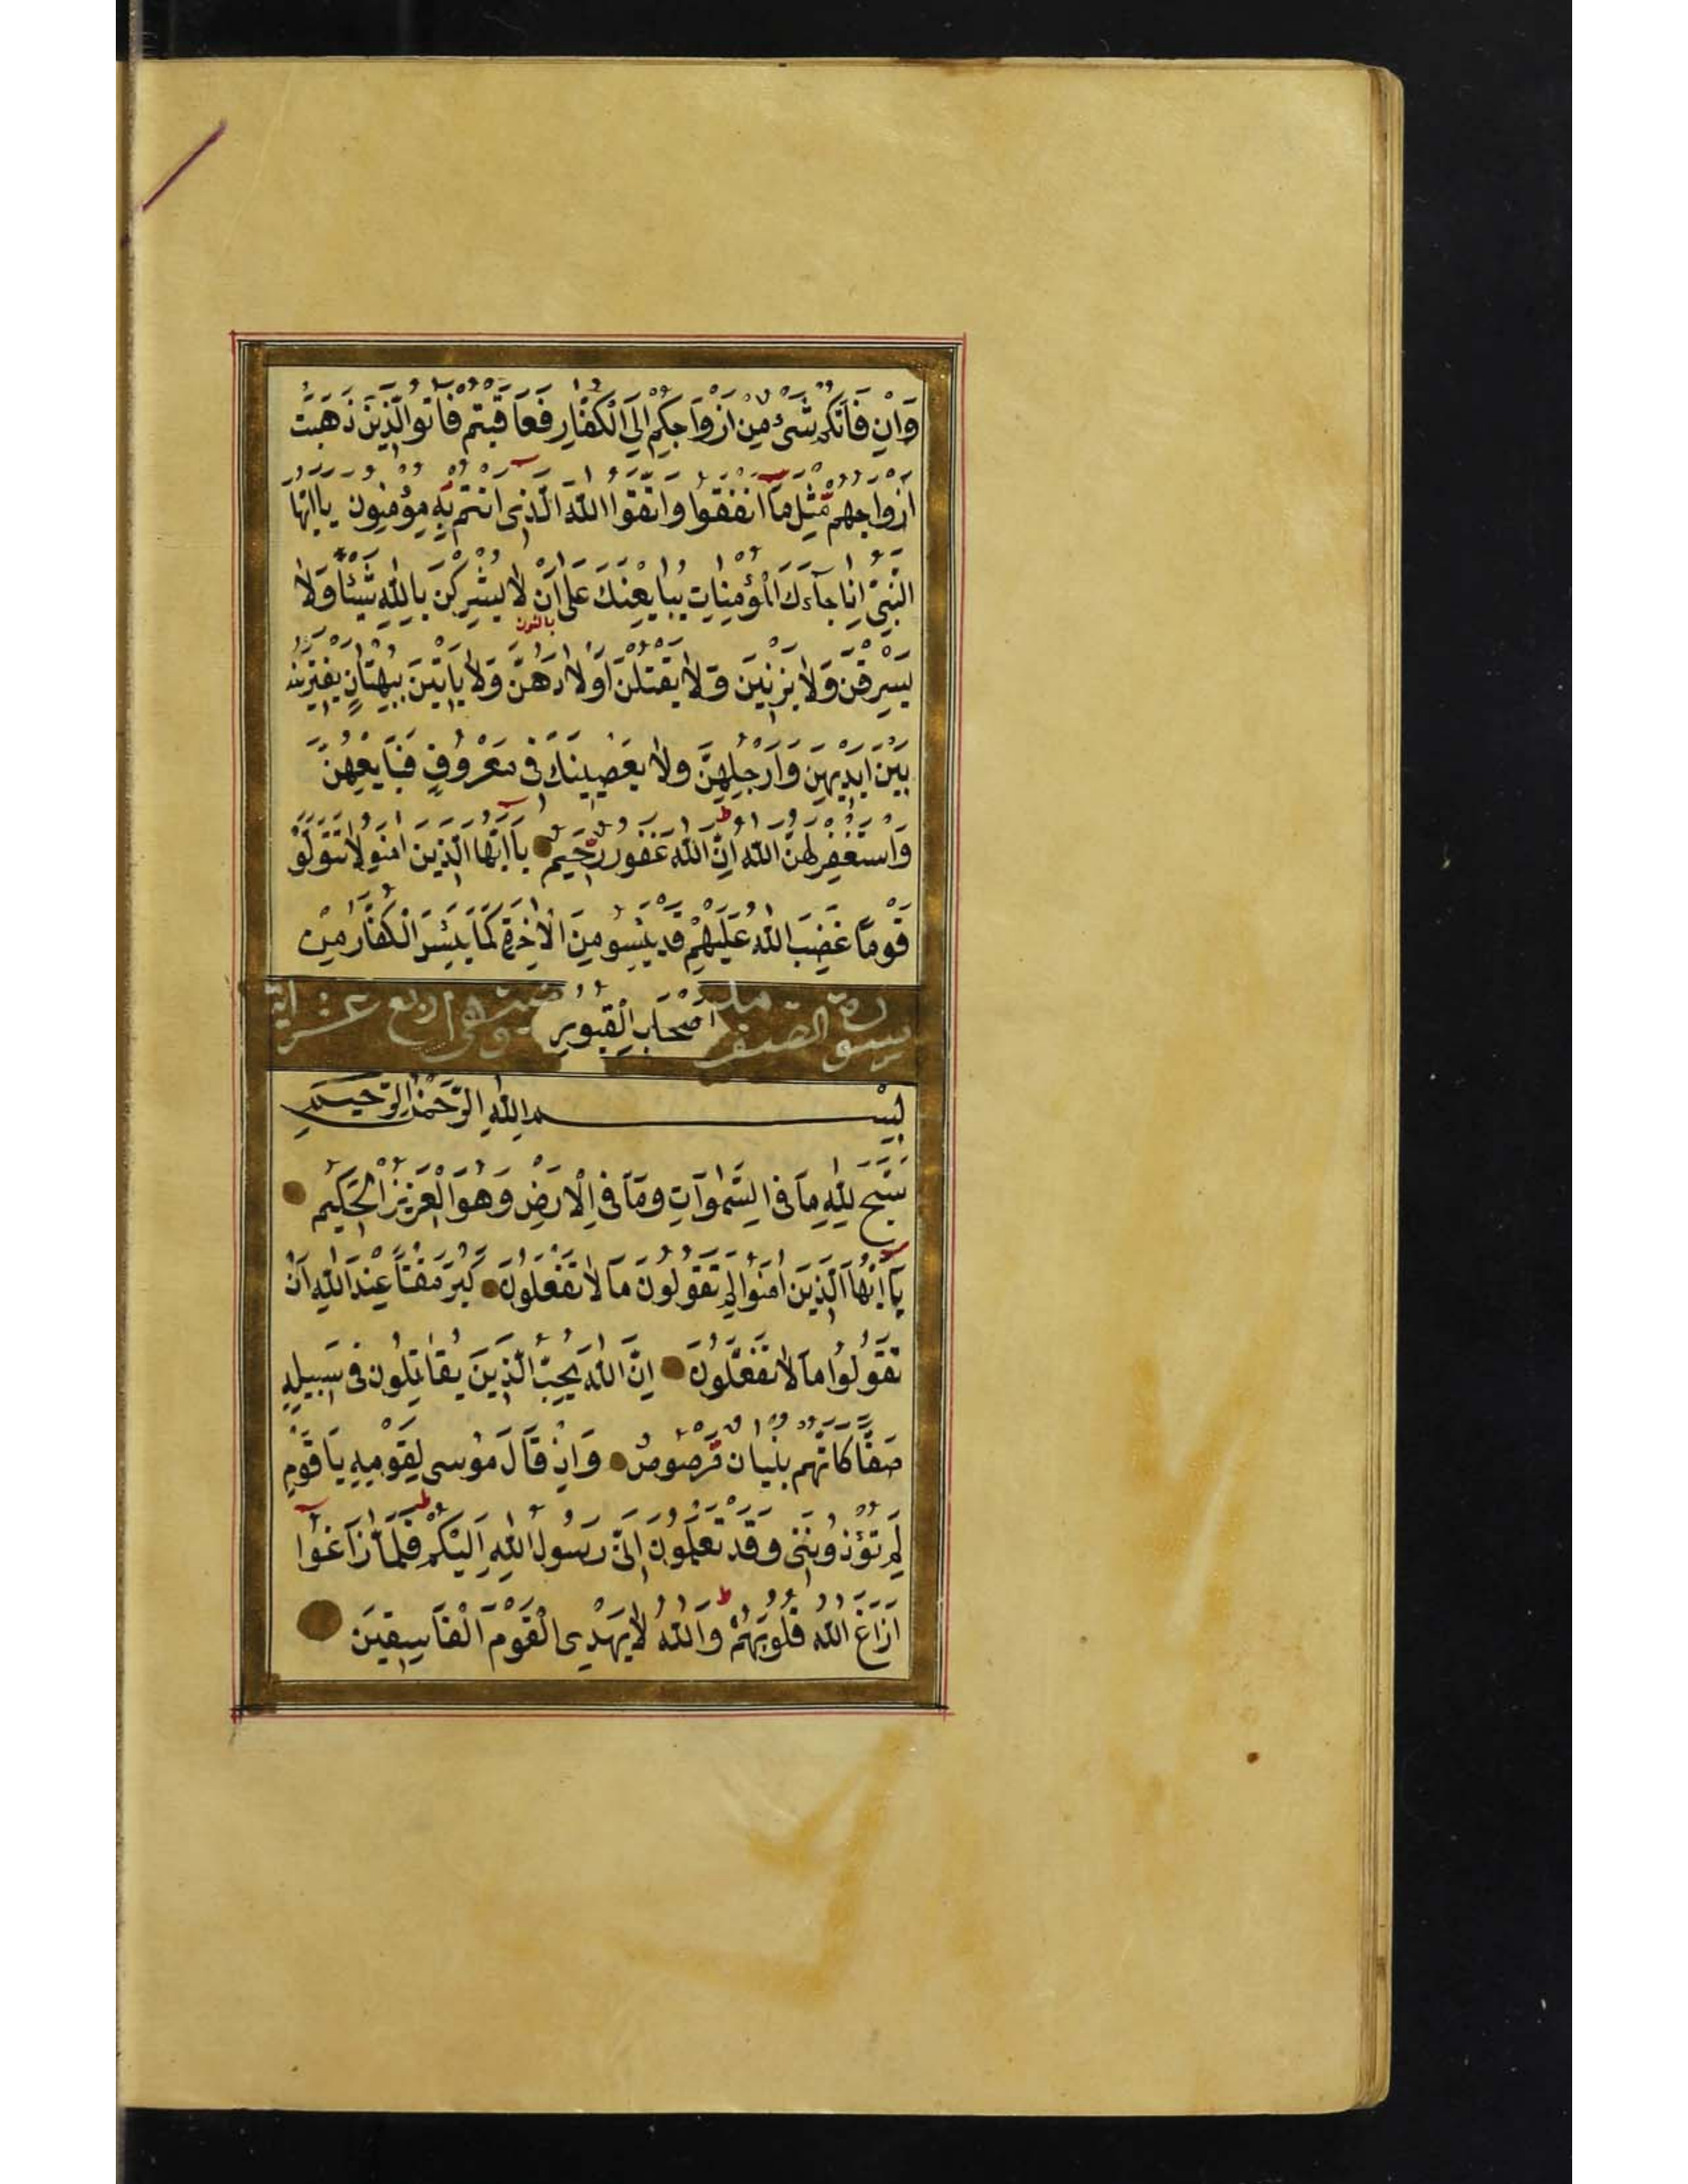 وَاِنْ فَاتَكُمْ شَىْءٌ مِنْ اَزْوَاجِكُمْ اِلَى الْكُفَّارِ فَعَاقَبْتُمْ فَاٰتُوا الَّذِينَ ذَهَبَتْ
اَزْوَاجُهُمْ مِثْلَ مَآ اَنْفَقُوا وَاتَّقُوا اللّٰهَ الَّذِى اَنْتُمْ بِهِ مُؤْمِنُونَ يَا اَيُّهَا
النَّبِىُّ اِذَا جَآءَكَ الْمُؤْمِنَاتُ يُبَايِعْنَكَ عَلَى اَنْ لَا يُشْرِكْنَ بِاللّٰهِ شَيْئًا وَلَا
بالنون
يَسْرِقْنَ وَلَا يَزْنِينَ وَلَا يَقْتُلْنَ اَوْلَادَهُنَّ وَلَا يَاْتِينَ بِبُهْتَانٍ يَفْتَرِينَهُ
بَيْنَ اَيْدِيهِنَّ وَاَرْجُلِهِنَّ وَلَا يَعْصِينَكَ فِى مَعْرُوفٍ فَبَايِعْهُنَّ
وَاسْتَغْفِرْ لَهُنَّ اللّٰهَ اِنَّ اللّٰهَ غَفُورٌ رَحِيمٌ يَآ اَيُّهَا الَّذِينَ اٰمَنُو لَا تَتَوَلَّوْ
قَوْمًا غَضِبَ اللّٰهُ عَلَيْهِمْ قَدْ يَئِسُو مِنَ الْاٰخِرَةِ كَمَا يَئِسَ الْكُفَّارُ مِنْ
اَصْحَابِ الْقُبُورِ
سورة الصف وهى اربع عشر اية
بِسْمِ اللّٰهِ الرَّحْمٰنِ الرَّحِيمِ
سَبَّحَ لِلّٰهِ مَا فِى السَّمٰوَاتِ وَمَا فِى الْاَرْضِ وَهُوَ الْعَزِيزُ الْحَكِيمُ
يَآ اَيُّهَا الَّذِينَ اٰمَنُوا لِمَ تَقُولُونَ مَا لَا تَفْعَلُونَ كَبُرَ مَقْتًا عِنْدَ اللّٰهِ اَنْ
تَقُولُوا مَا لَا تَفْعَلُونَ اِنَّ اللّٰهَ يُحِبُّ الَّذِينَ يُقَاتِلُونَ فِى سَبِيلِهِ
صَفًّا كَاَنَّهُمْ بُنْيَانٌ مَرْصُوصٌ وَاِذْ قَالَ مُوسَى لِقَوْمِهِ يَا قَوْمِ
لِمَ تُؤْذُونَنِى وَقَدْ تَعْلَمُونَ اَنِّى رَسُولُ اللّٰهِ اِلَيْكُمْ فَلَمَّا زَاغُوا
اَزَاغَ اللّٰهُ قُلُوبَهُمْ وَاللّٰهُ لَا يَهْدِى الْقَوْمَ الْفَاسِقِينَ